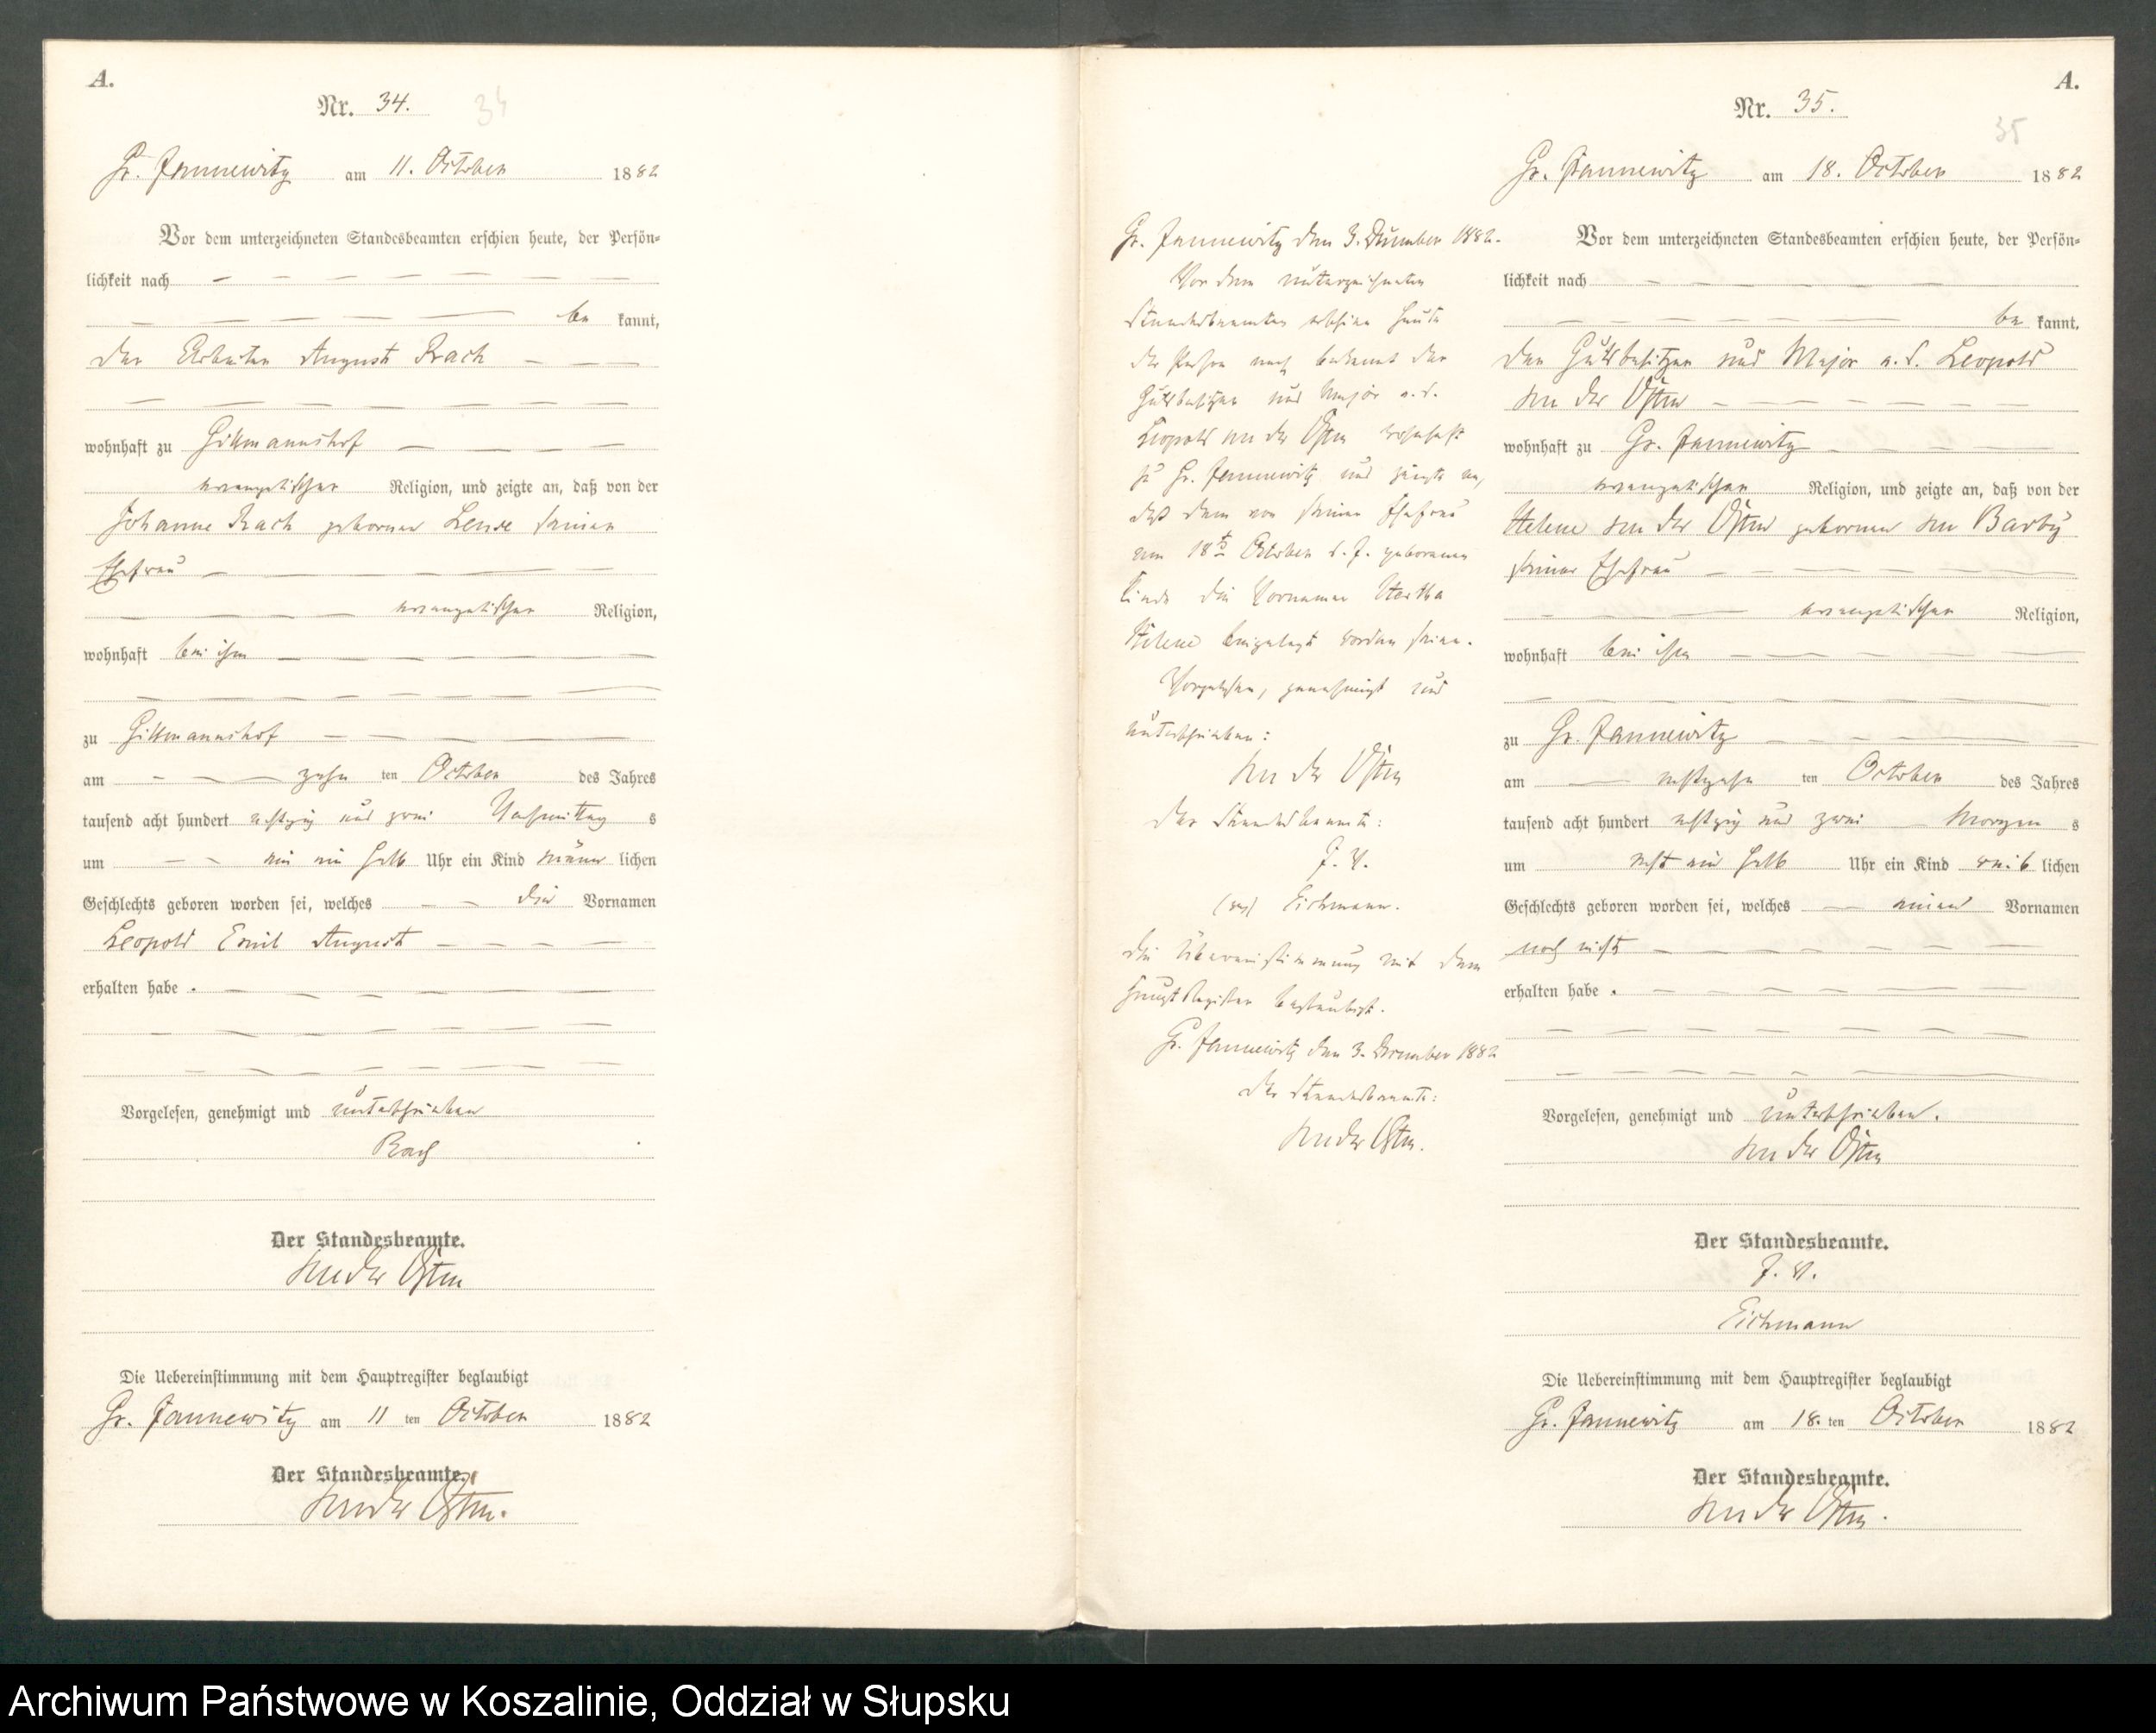 A.
Nr. 34.
34
Gr. Jannewitz am 11. October 1882
Vor dem unterzeichneten Standesbeamten erschien heute, der Persön-
lichkeit nach
be kannt,
der Arbeiter August Rach
wohnhaft zu Gillmannshof
evangelischer Religion, und zeigte an, daß von der
Johanne Rach geborner seiner
Ehefrau
evangelischer Religion,
wohnhaft bei ihm
zu Gillmannshof
am zehn ten October des Jahres
tausend acht hundert achtzig und zwei Nachmittag s
um ein halb Uhr ein Kind männ lichen
Geschlechts geboren worden sei, welches die Vornamen
Leopold Emil August
erhalten habe .
Vorgelesen, genehmigt und unterschrieben
Rach
Der Standesbeamte.
von der Osten
Die Uebereinstimmung mit dem Hauptregister beglaubigt
Gr. Jannewitz am 11 ten October 1882
Der Standesbeamte.
von der Osten.
Gr. Jannewitz den 3. Dezember 1882.
Vor dem unterzeichneten
Standesbeamten erschien heute
der Person nach bekannt der
Gutsbesitzer und Major a. D.
Leopold von der Osten wohnhaft
zu Gr. Jannewitz und zeigte an,
daß dem von seiner Ehefrau
am 18ten October d. J. geborenen
Kinde die Vornamen Hertha
Helene beigelegt worden seien.
Vorgelesen, genehmigt und
unterschrieben:
von der Osten
Der Standesbeamte:
J. V.
(gez) Eichmann.
Die Übereinstimmung mit dem
Haupt Register beglaubigt.
Gr. Jannewitz den 3. Dezember 1882
Der Standesbeamte:
von der Osten.
A.
Nr. 35.
35
Gr. Jannewitz am 18. October 1882
Vor dem unterzeichneten Standesbeamten erschien heute, der Persön-
lichkeit nach
be kannt,
der Gutsbesitzer und Major a. D. Leopold
von der Osten
wohnhaft zu Gr. Jannewitz
evangelischer Religion, und zeigte an, daß von der
Helene von der Osten gebornen von Barby
seiner Ehefrau
evangelischer Religion,
wohnhaft bei ihm
zu Gr. Jannewitz
am achtzehn ten October des Jahres
tausend acht hundert achtzig und zwei Morgen s
um acht ein halb Uhr ein Kind weib lichen
Geschlechts geboren worden sei, welches einen Vornamen
noch nicht
erhalten habe .
Vorgelesen, genehmigt und unterschrieben.
von der Osten
Der Standesbeamte.
J. V.
Eichmann
Die Uebereinstimmung mit dem Hauptregister beglaubigt
Gr. Jannewitz am 18. ten October 1882
Der Standesbeamte.
von der Osten.
Archiwum Państwowe w Koszalinie, Oddział w Słupsku